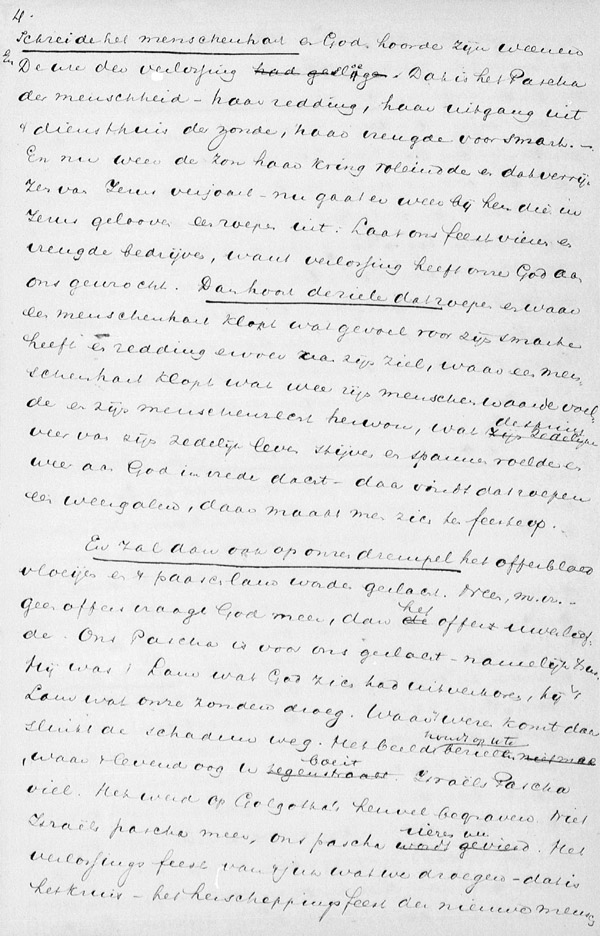 4.
Schreide het menschenhart en God hoorde zijn weenen
En De ure der verlossing had geslage. Dat is het Pascha
der menschheid – haar redding, haar uitgang uit
't diensthuis der zonde, haar vreugde voor smart. –
En nu weer de zon haar kring voleindde en dat verrij-
zen van Jezus verjaart – nu gaat er weer bij hen die in
Jezus gelooven een roepen uit: Laat ons feest vieren en
vreugde bedrijven, want verlossing heeft onze God aan
ons gewrocht. Dan hoort de ziele dat roepen en waar
een menschenhart klopt wat gevoel voor zijn smarte
heeft en redding voor zijn ziel, waar een men-
schenhart klopt wat weer zijn menschenwaarde voel-
de en zijn menschenrecht herwon, wat zijn zedelijke
veer van zijn zedelijk leven stijven en spannen voelde en
weer aan God in vrede dacht – daar vindt dat roepen
een weergalm, daar maakt men zich ten feeste op.
En zal dan ook op onzen drempel het offerbloed
vloeijen en 't paaschlam worden geslacht. Neen, m.vr. –
geen offers vraagt God meer, dan het offer
de. Ons Pascha is voor ons geslacht – namelijk
Hij was 't Lam wat God zich had uitverkoren, hij 't
Lam wat onze zonden droeg. Waar 't wezen komt daar
sluit de schaduw weg. Het beeld houdt op te
, waar 't levend oog u tegenstraalt. Israëls Pascha
viel. Het werd op Golgotha's heuvel begraven. Niet
Israëls pascha meer, ons pascha vieren we wordt gevierd. Het
verlossings feest van 't juk wat we droegen – dat is
het kruis – het herscheppingsfeest der nieuwe mensch